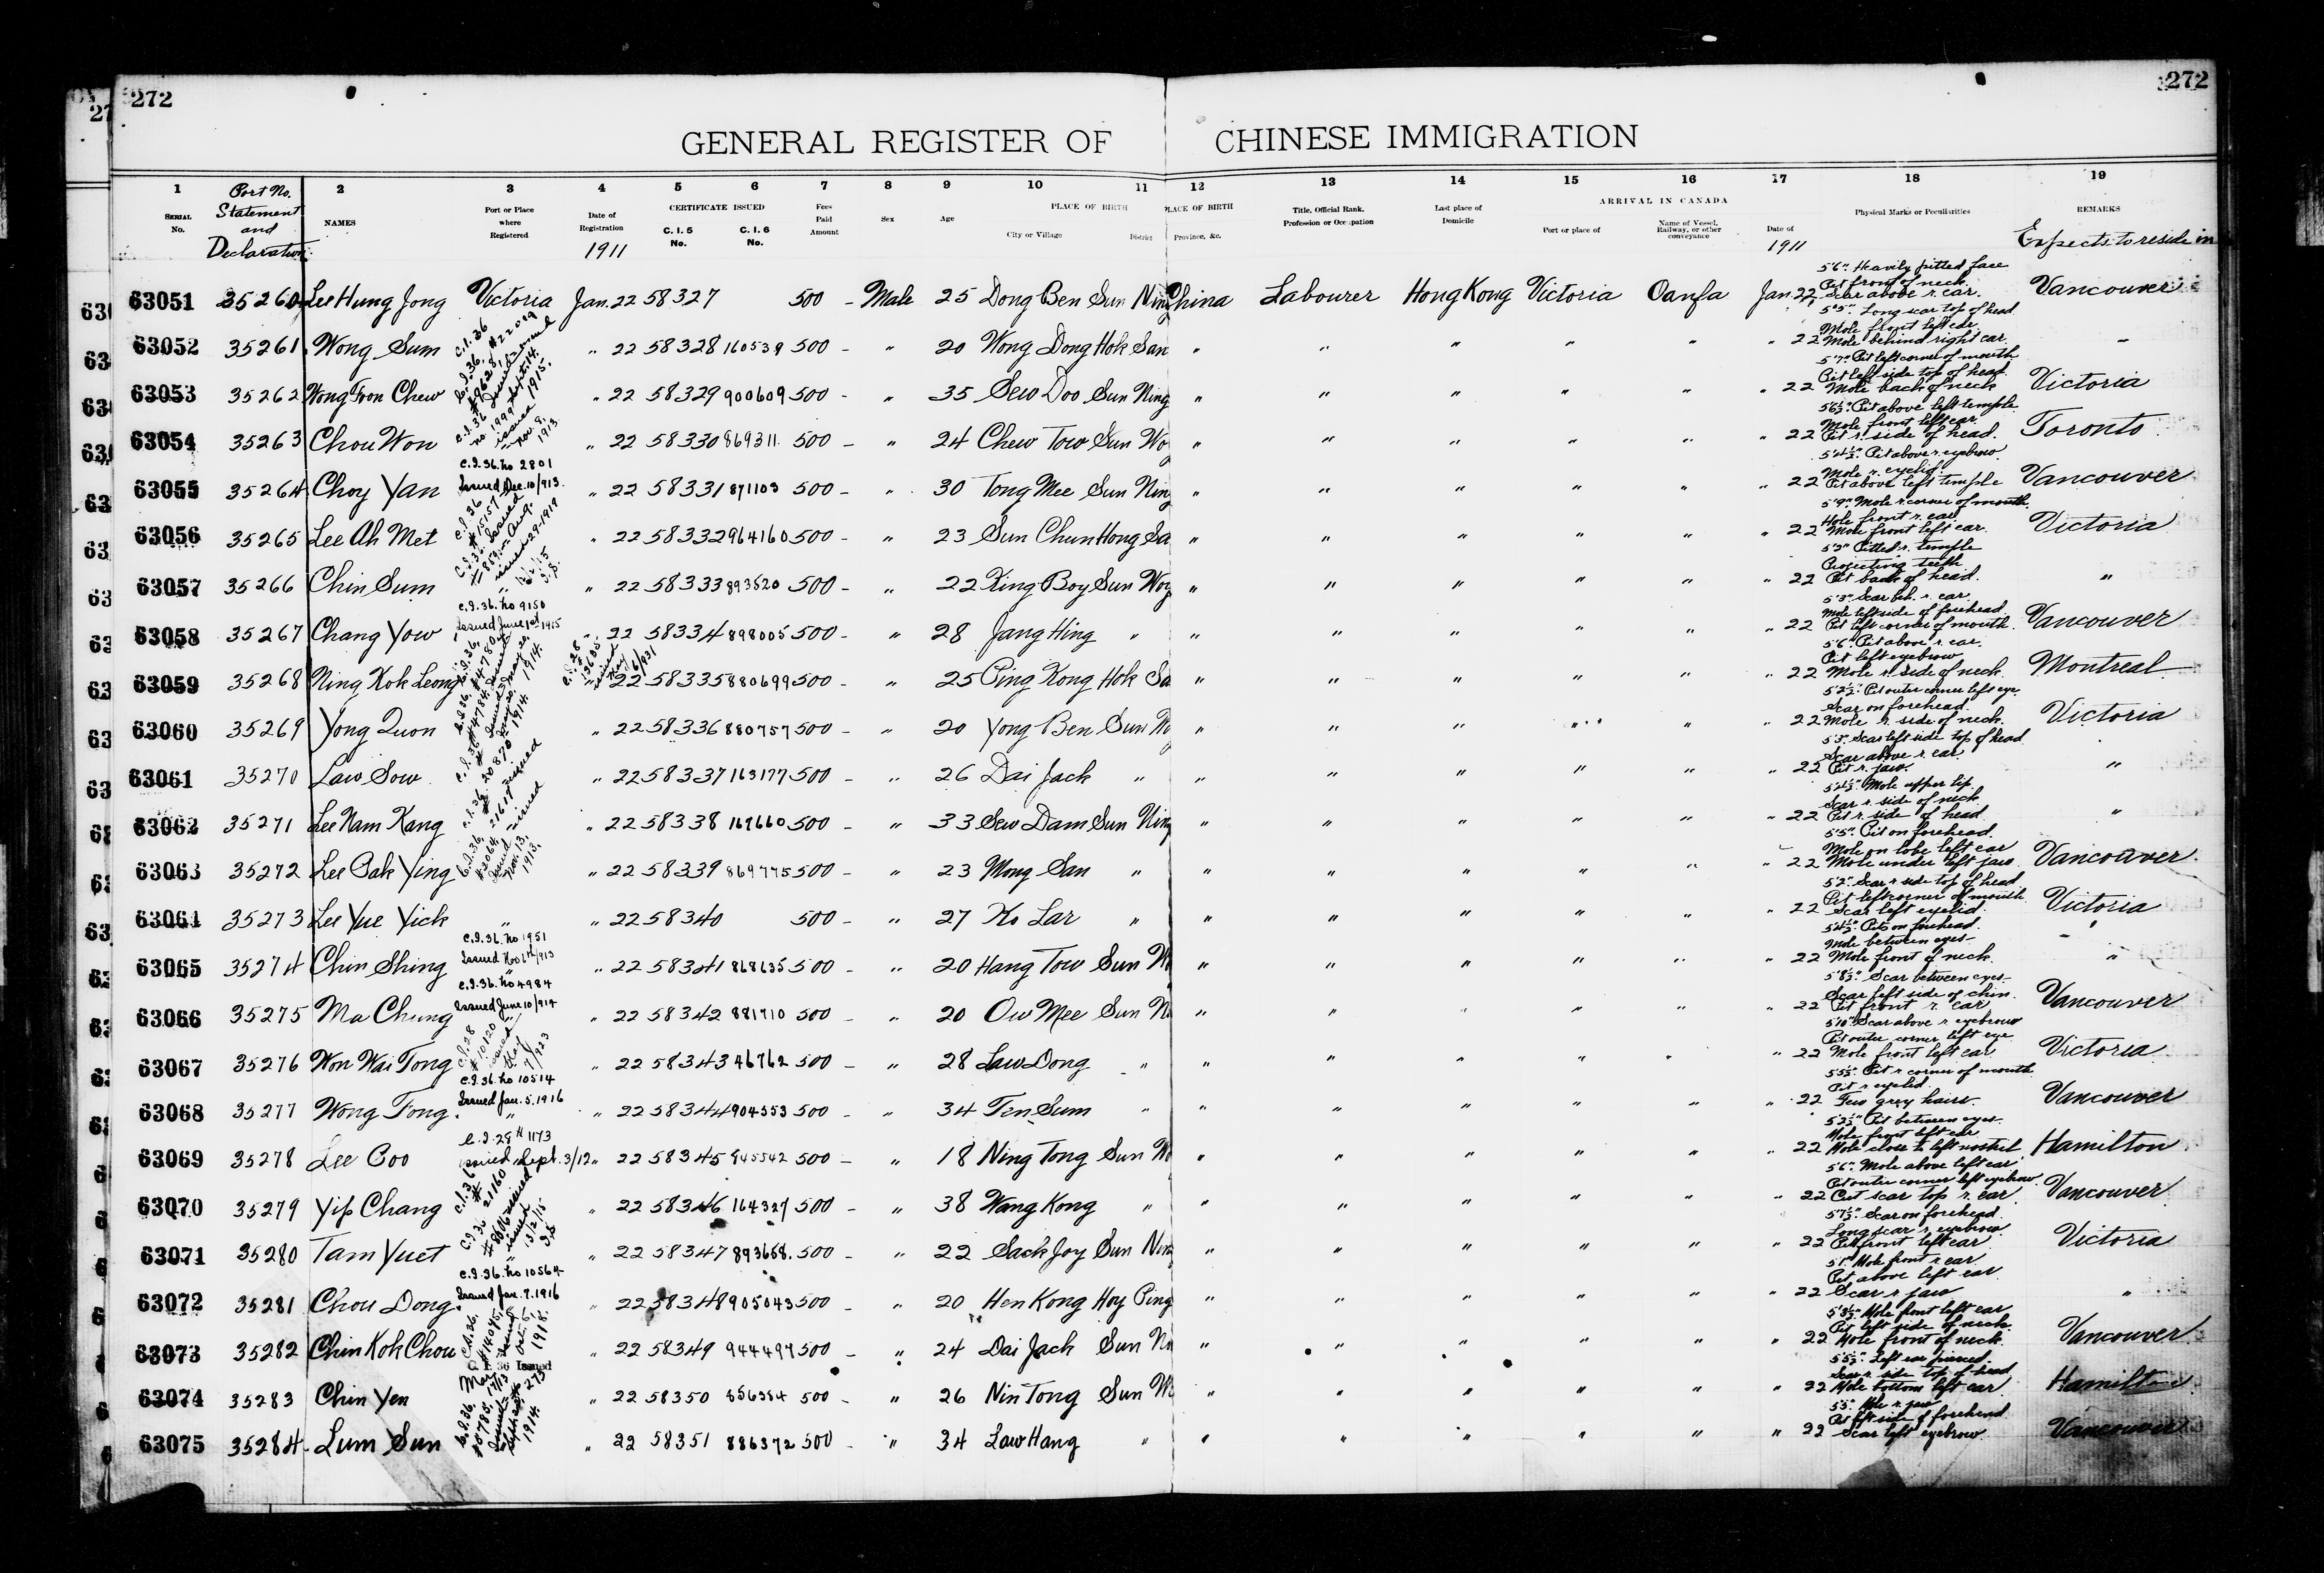 272
272
GENERAL REGISTER OF CHINESE IMMIGRATION
1 Port No. Statement and Declaration 2 3 4 5 6 7 8 9 10 11 12 13 14 15 16 17 18 19
SERIAL No. NAMES Port or Place where Registered Date of Registration CERTIFICATE ISSUED C. I. 5 No. C. I. 6 No. Fees Paid Amount Sex Age PLACE OF BIRTH City or Village District PLACE OF BIRTH Province, &c. Title, Official Rank, Profession or Occupation Last place of Domicile ARRIVAL IN CANADA Port or place of Name of Vessel, Railway, or other conveyance Date of Physical Marks or Peculiarities REMARKS
1911 1911 Expects to reside in
63051 35260 Lee Hung Jong Victoria Jan. 22 58327 500 - Male 25 Dong Ben Sun Nin China Labourer Hong Kong Victoria Oanfa Jan. 22 5'6" Heavily pitted face Pit front of neck. Scar above r. ear. Vancouver
63052 35261 Wong Sum " 22 58328 160539 500 - " 20 Wong Dong Hok San " " " " " " 22 5'5" Long scar top of head Mole front left ear. Mole behind right ear. "
63053 35262 Wong Foon Chew " 22 58329 900609 500 - " 35 Sew Doo Sun Ning " " " " " " 22 5'7" Pit left corner of mouth Pit left side top of head. Mole back of neck Victoria
63054 35263 Chou Won " 22 58330 869311 500 - " 24 Chew Tow Sun Wo " " " " " " 22 5'6½" Pit above left temple Mole front left ear. Pit r. side of head. Toronto
63055 35264 Choy Yan C.I.36. No 2801 Issued Dec. 10/913. " 22 58331 871103 500 - " 30 Tong Mee Sun Ning " " " " " " 22 5'4½" Pit above r. eyebrow Mole r. eyelid. Pit above left temple Vancouver
63056 35265 Lee Ah Met " 22 58332 964160 500 - " 23 Sun Chun Hong Sa " " " " " " 22 5'9" Mole r corner of mouth Hole front r. ear Mole front left ear. Victoria
63057 35266 Chin Sum " 22 58333 893520 500 - " 22 King Boy Sun Woy " " " " " " 22 5'3" Pitted r. temple Projecting teeth Pit back of head. "
63058 35267 Chang Yow C.I.36. No 9150 Issued June 1st 1915 " 22 58334 898005 500 - " 28 Jang Hing " " " " " " " 22 5'3" Scar beh. r. ear. Mole left side of forehead. Pit left corner of mouth. Vancouver
63059 35268 Ning Kok Leong " 22 58335 880699 500 - " 25 Ping Kong Hok Sa " " " " " " 22 5'6" Pit above r. ear. Pit left eyebrow Mole r. side of neck. Montreal
63060 35269 Yong Quon " 22 58336 880757 500 - " 20 Yong Ben Sun N " " " " " " 22 5'2½" Pit outer corner left eye. Scar on forehead. Mole r. side of neck. Victoria
63061 35270 Law Sow " 22 58337 163177 500 - " 26 Dai Jack " " " " " " " 22 5'3" Scar left side top of head Scar above r. ear. Pit r. jaw. "
63062 35271 Lee Nam Kang " 22 58338 167660 500 - " 33 Sew Dam Sun Ning " " " " " " 22 5'4½" Mole upper lip. Scar r. side of neck Pit r. side of head. "
63063 35272 Lee Pak Ying " 22 58339 869775 500 - " 23 Mong San " " " " " " " 22 5'5" Pit on forehead. Mole on lobe left ear Mole under left jaw. Vancouver
63064 35273 Lee Yue Yick " " 22 58340 500 - " 27 Ko Lar " " " " " " " 22 5'2" Scar r side top of head Pit left corner of mouth. Scar left eyelid. Victoria
63065 35274 Chin Shing C.I.36. No 1951 Issued Nov 6th/913 " 22 58341 868635 500 - " 20 Hang Tow Sun N " " " " " " 22 5'4½" Pits on forehead. Mole between eyes. Mole front of neck. "
63066 35275 Ma Chung C.I.36. No 4984 Issued June 10/914 " 22 58342 881710 500 - " 20 Ow Mee Sun N " " " " " " 22 5'8½" Scar between eyes. Scar left side of chin. Pit front r. ear Vancouver
63067 35276 Won Wai Tong " 22 58343 46762 500 - " 28 Law Dong " " " " " " " 22 5'10" Scar above r eyebrow Pit outer corner left eye Mole front left ear. Victoria
63068 35277 Wong Fong C.I.36. No 10514 Issued Jan. 5. 1916 " 22 58344 904553 500 - " 34 Ten Sum " " " " " " " 22 5'5½" Pit r corner of mouth. Pit r eyelid. Few grey hairs. Vancouver
63069 35278 Lee Coo C.I.28 # 1173 issued Sept. 3/12 " 22 58345 845542 500 - " 18 Ning Tong Sun N " " " " " " 22 5'2½" Pit between eyes. Mole front left ear Mole close to left nostril. Hamilton
63070 35279 Yip Chang " 22 58346 164327 500 - " 38 Wang Kong " " " " " " " 22 5'6" Mole above left ear. Pit outer corner left eyebrow. Cut scar top r. ear Vancouver
63071 35280 Tam Yuet " 22 58347 893668 500 - " 22 Sack Joy Sun Nin " " " " " " 22 5'7½" Scar on forehead. Long scar r. eyebrow Pit front left ear Victoria
63072 35281 Chou Dong C.I.36. No 10564 Issued Jan. 7. 1916 " 22 58348 905043 500 - " 20 Hen Kong Hoy Ping " " " " " " 22 5'1" Mole front r ear. Pit above left ear. Scar r jaw "
63073 35282 Chin Kok Chou " 22 58349 944497 500 - " 24 Dai Jack Sun N " " " " " " 22 5'8½" Mole front left ear Pit left side of neck. Mole front of neck. Vancouver
63074 35283 Chin Yen C. I. 36 Issued " 22 58350 856384 500 - " 26 Nin Tong Sun N " " " " " " 22 5'5½" Left ear pierced. Scar r. side top of head Mole bottom left ear Hamilton
63075 35284 Lum Sun " 22 58351 886372 500 - " 34 Law Hang " " " " " " " 22 5'5" Mole r. jaw Pit left side of forehead Scar left eyebrow. Vancouver